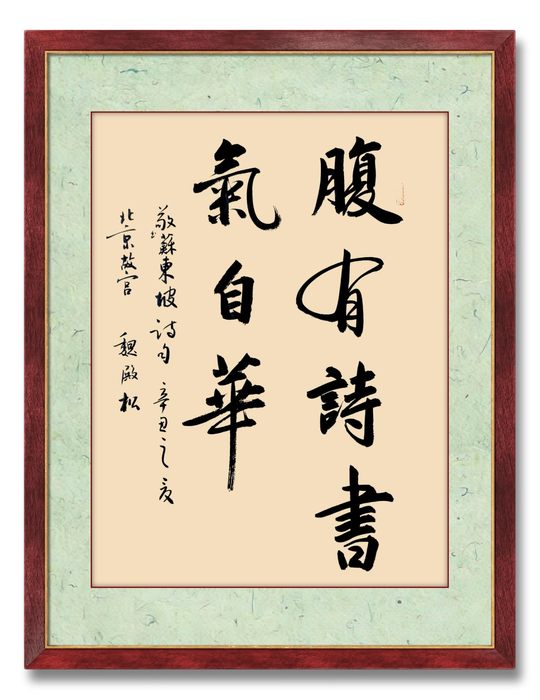 腹有詩書
氣自華
敬蘇東坡詩句 辛丑之夏
北京故宮 魏殿松